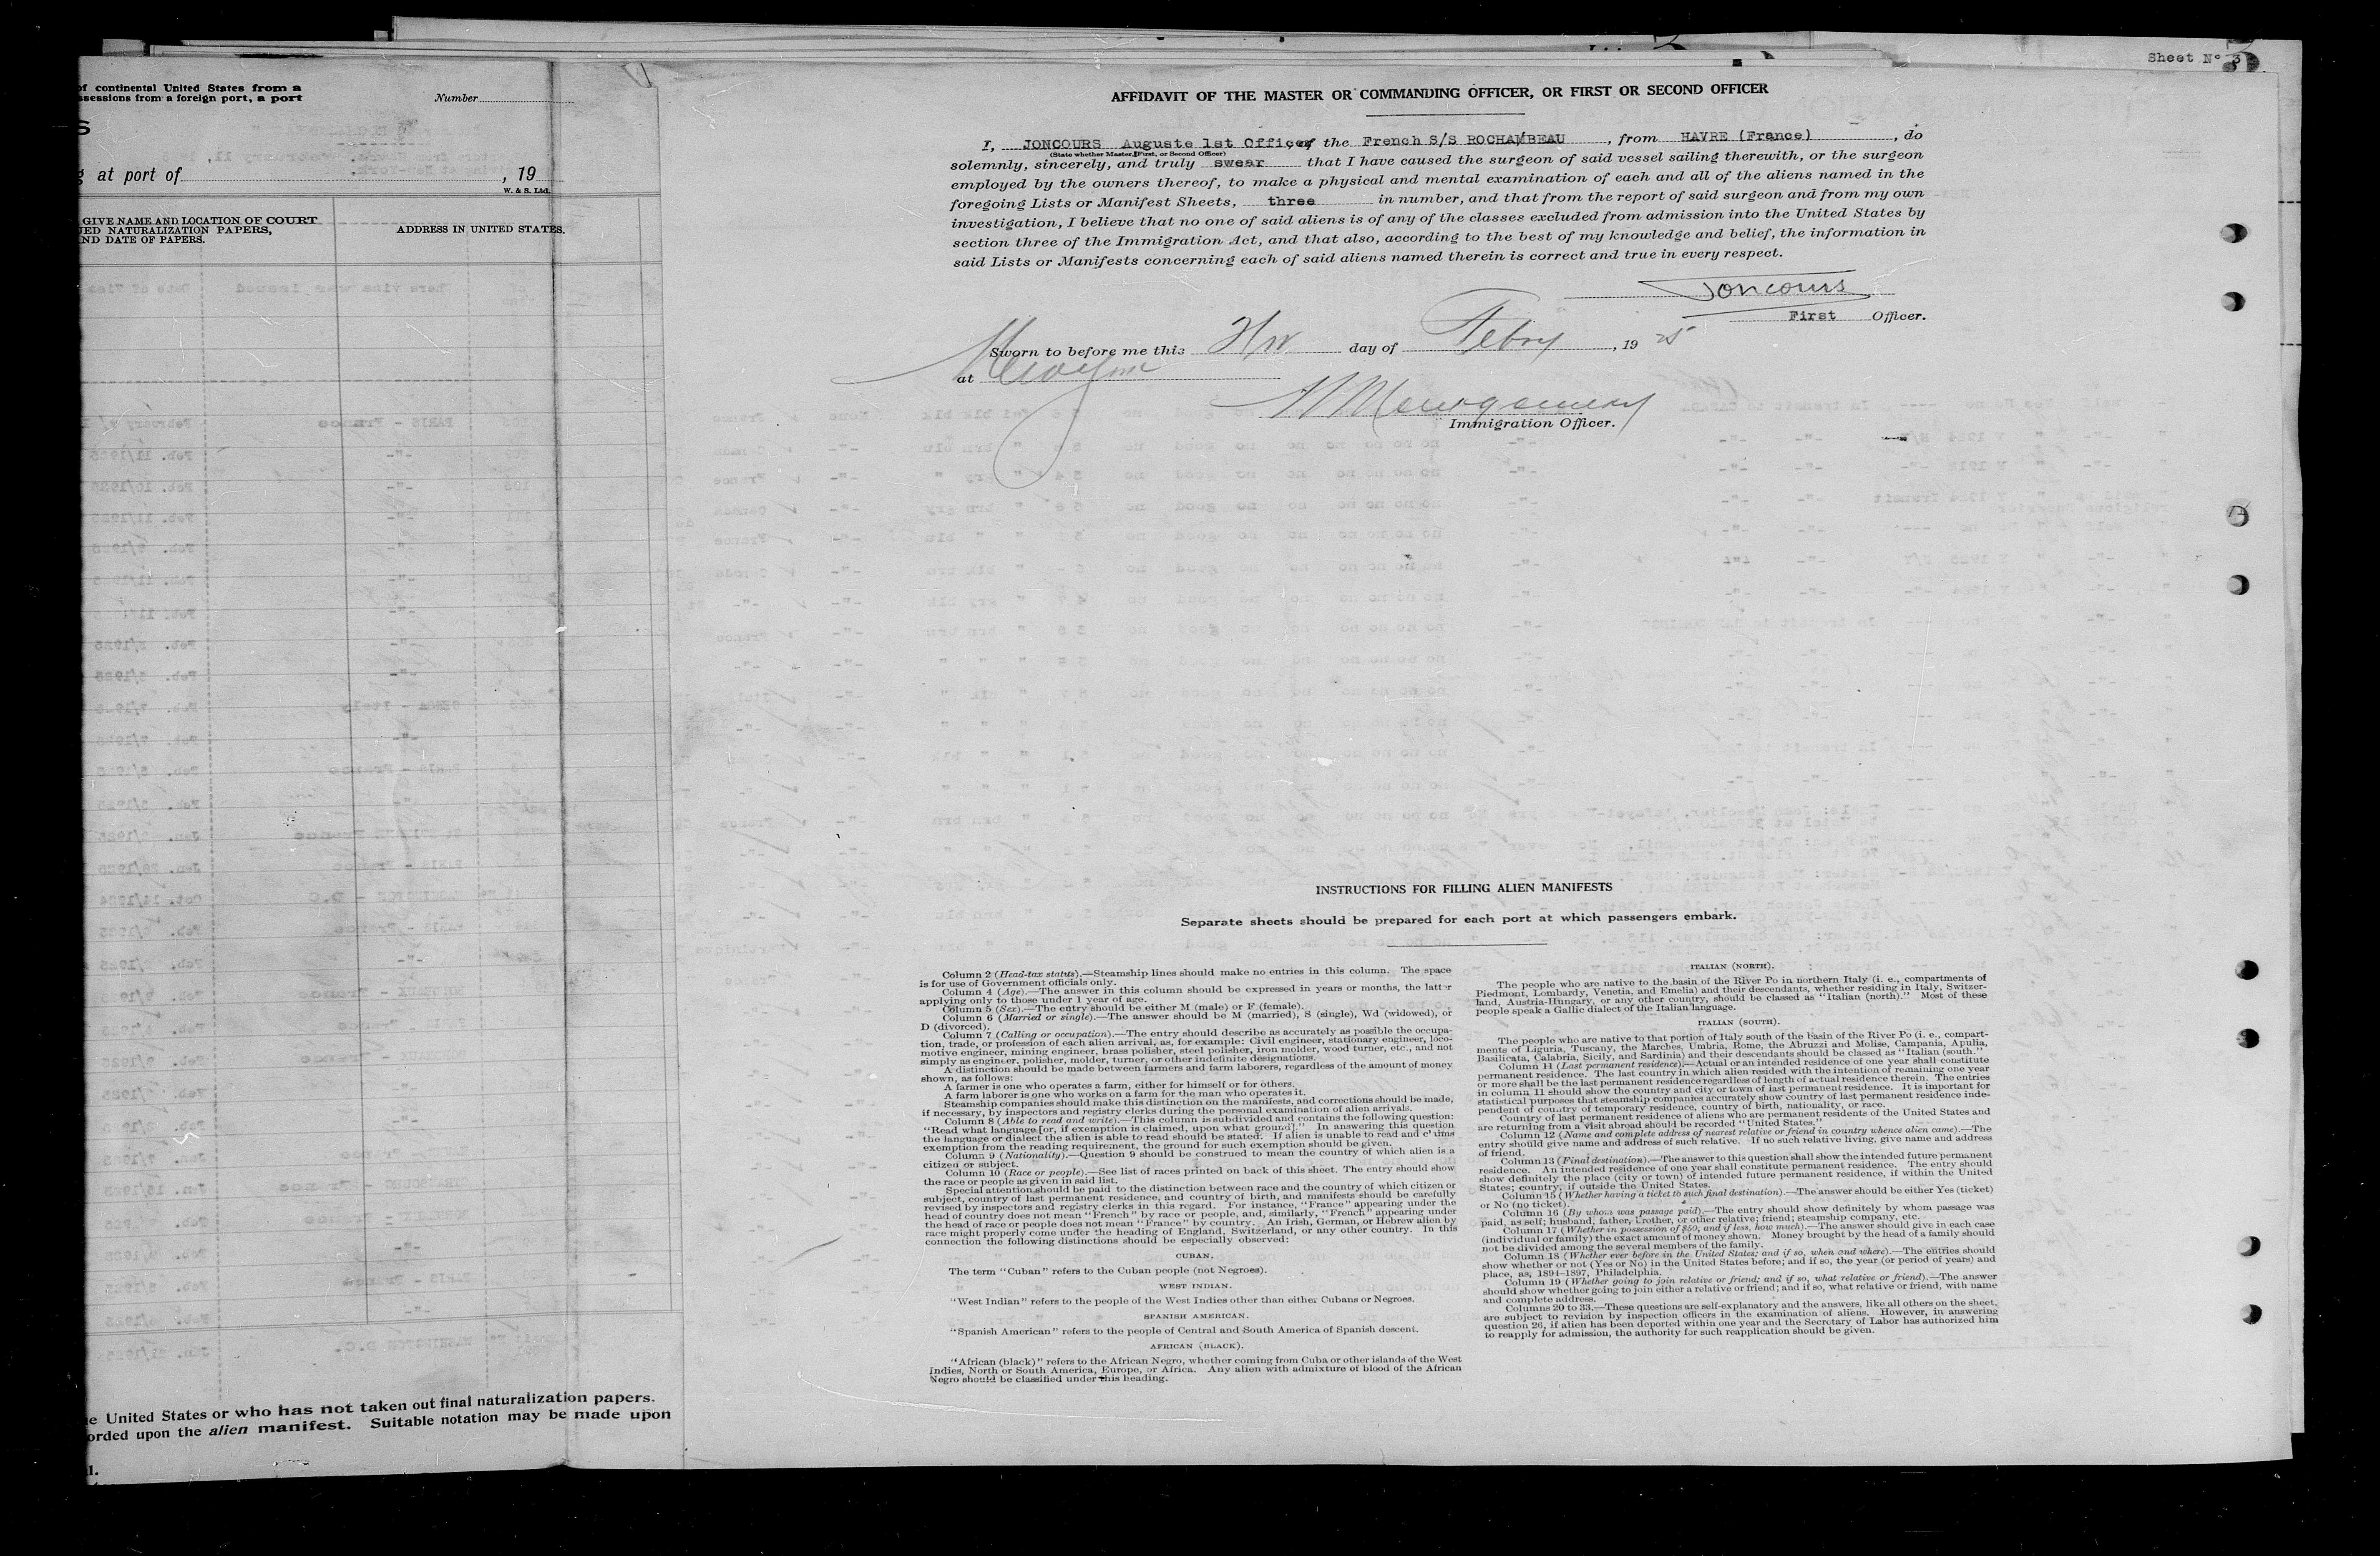 Sheet No 3
of continental United States from a
ssessions from a foreign port, a port
Number
S
g at port of , 19
W. & S. Ltd.
GIVE NAME AND LOCATION OF COURT
ED NATURALIZATION PAPERS,
ND DATE OF PAPERS.
ADDRESS IN UNITED STATES.
e United States or who has not taken out final naturalization papers.
orded upon the alien manifest. Suitable notation may be made upon
l.
AFFIDAVIT OF THE MASTER OR COMMANDING OFFICER, OR FIRST OR SECOND OFFICER
I, JONCOURS Auguste 1st Officer of the French S/S ROCHAMBEAU , from HAVRE (France) , do
(State whether Master, First, or Second Officer)
solemnly, sincerely, and truly swear that I have caused the surgeon of said vessel sailing therewith, or the surgeon
employed by the owners thereof, to make a physical and mental examination of each and all of the aliens named in the
foregoing Lists or Manifest Sheets, three in number, and that from the report of said surgeon and from my own
investigation, I believe that no one of said aliens is of any of the classes excluded from admission into the United States by
section three of the Immigration Act, and that also, according to the best of my knowledge and belief, the information in
said Lists or Manifests concerning each of said aliens named therein is correct and true in every respect.
Joncours
First Officer.
Sworn to before me this day of Febry , 19 25
at
Montgomery
Immigration Officer.
INSTRUCTIONS FOR FILLING ALIEN MANIFESTS
Separate sheets should be prepared for each port at which passengers embark.
Column 2 (Head-tax status).—Steamship lines should make no entries in this column. The space
is for use of Government officials only.
Column 4 (Age).—The answer in this column should be expressed in years or months, the latter
applying only to those under 1 year of age.
Column 5 (Sex).—The entry should be either M (male) or F (female).
Column 6 (Married or single).—The answer should be M (married), S (single), Wd (widowed), or
D (divorced).
Column 7 (Calling or occupation).—The entry should describe as accurately as possible the occupa-
tion, trade, or profession of each alien arrival, as, for example: Civil engineer, stationary engineer, loco-
motive engineer, mining engineer, brass polisher, steel polisher, iron molder, wood turner, etc., and not
simply as engineer, polisher, molder, turner, or other indefinite designations.
A distinction should be made between farmers and farm laborers, regardless of the amount of money
shown, as follows:
A farmer is one who operates a farm, either for himself or for others.
A farm laborer is one who works on a farm for the man who operates it.
Steamship companies should make this distinction on the manifests, and corrections should be made,
if necessary, by inspectors and registry clerks during the personal examination of alien arrivals.
Column 8 (Able to read and write).—This column is subdivided and contains the following question:
"Read what language [or, if exemption is claimed, upon what ground]." In answering this question
the language or dialect the alien is able to read should be stated. If alien is unable to read and claims
exemption from the reading requirement, the ground for such exemption should be given.
Column 9 (Nationality).—Question 9 should be construed to mean the country of which alien is a
citizen or subject.
Column 10 (Race or people).—See list of races printed on back of this sheet. The entry should show
the race or people as given in said list.
Special attention should be paid to the distinction between race and the country of which citizen or
subject, country of last permanent residence, and country of birth, and manifests should be carefully
revised by inspectors and registry clerks in this regard. For instance, "France" appearing under the
head of country does not mean "French" by race or people, and, similarly, "French" appearing under
the head of race or people does not mean "France" by country. An Irish, German, or Hebrew alien by
race might properly come under the heading of England, Switzerland, or any other country. In this
connection the following distinctions should be especially observed:
CUBAN.
The term "Cuban" refers to the Cuban people (not Negroes).
WEST INDIAN.
"West Indian" refers to the people of the West Indies other than either Cubans or Negroes.
SPANISH AMERICAN.
"Spanish American" refers to the people of Central and South America of Spanish descent.
AFRICAN (BLACK).
"African (black)" refers to the African Negro, whether coming from Cuba or other islands of the West
Indies, North or South America, Europe, or Africa. Any alien with admixture of blood of the African
Negro should be classified under this heading.
ITALIAN (NORTH).
The people who are native to the basin of the River Po in northern Italy (i. e., compartments of
Piedmont, Lombardy, Venetia, and Emelia) and their descendants, whether residing in Italy, Switzer-
land, Austria-Hungary, or any other country, should be classed as "Italian (north)." Most of these
people speak a Gallic dialect of the Italian language.
ITALIAN (SOUTH).
The people who are native to that portion of Italy south of the basin of the River Po (i. e., compart-
ments of Liguria, Tuscany, the Marches, Umbria, Rome, the Abruzzi and Molise, Campania, Apulia,
Basilicata, Calabria, Sicily, and Sardinia) and their descendants should be classed as "Italian (south."
Column 11 (Last permanent residence).—Actual or an intended residence of one year shall constitute
permanent residence. The last country in which alien resided with the intention of remaining one year
or more shall be the last permanent residence regardless of length of actual residence therein. The entries
in column 11 should show the country and city or town of last permanent residence. It is important for
statistical purposes that steamship companies accurately show country of last permanent residence inde-
pendent of country of temporary residence, country of birth, nationality, or race.
Country of last permanent residence of aliens who are permanent residents of the United States and
are returning from a visit abroad should be recorded "United States."
Column 12 (Name and complete address of nearest relative or friend in country whence alien came).—The
entry should give name and address of such relative. If no such relative living, give name and address
of friend.
Column 13 (Final destination).—The answer to this question shall show the intended future permanent
residence. An intended residence of one year shall constitute permanent residence. The entry should
show definitely the place (city or town) of intended future permanent residence, if within the United
States; country, if outside the United States.
Column 15 (Whether having a ticket to such final destination).—The answer should be either Yes (ticket)
or No (no ticket).
Column 16 (By whom was passage paid).—The entry should show definitely by whom passage was
paid, as self; husband, father, brother, or other relative; friend; steamship company, etc.
Column 17 (Whether in possession of $50, and if less, how much).—The answer should give in each case
(individual or family) the exact amount of money shown. Money brought by the head of a family should
not be divided among the several members of the family.
Column 18 (Whether ever before in the United States; and if so, when and where).—The entries should
show whether or not (Yes or No) in the United States before; and if so, the year (or period of years) and
place, as, 1894-1897, Philadelphia.
Column 19 (Whether going to join relative or friend; and if so, what relative or friend).—The answer
should show whether going to join either a relative or friend; and if so, what relative or friend, with name
and complete address.
Columns 20 to 33.—These questions are self-explanatory and the answers, like all others on the sheet,
are subject to revision by inspection officers in the examination of aliens. However, in answering
question 26, if alien has been deported within one year and the Secretary of Labor has authorized him
to reapply for admission, the authority for such reapplication should be given.